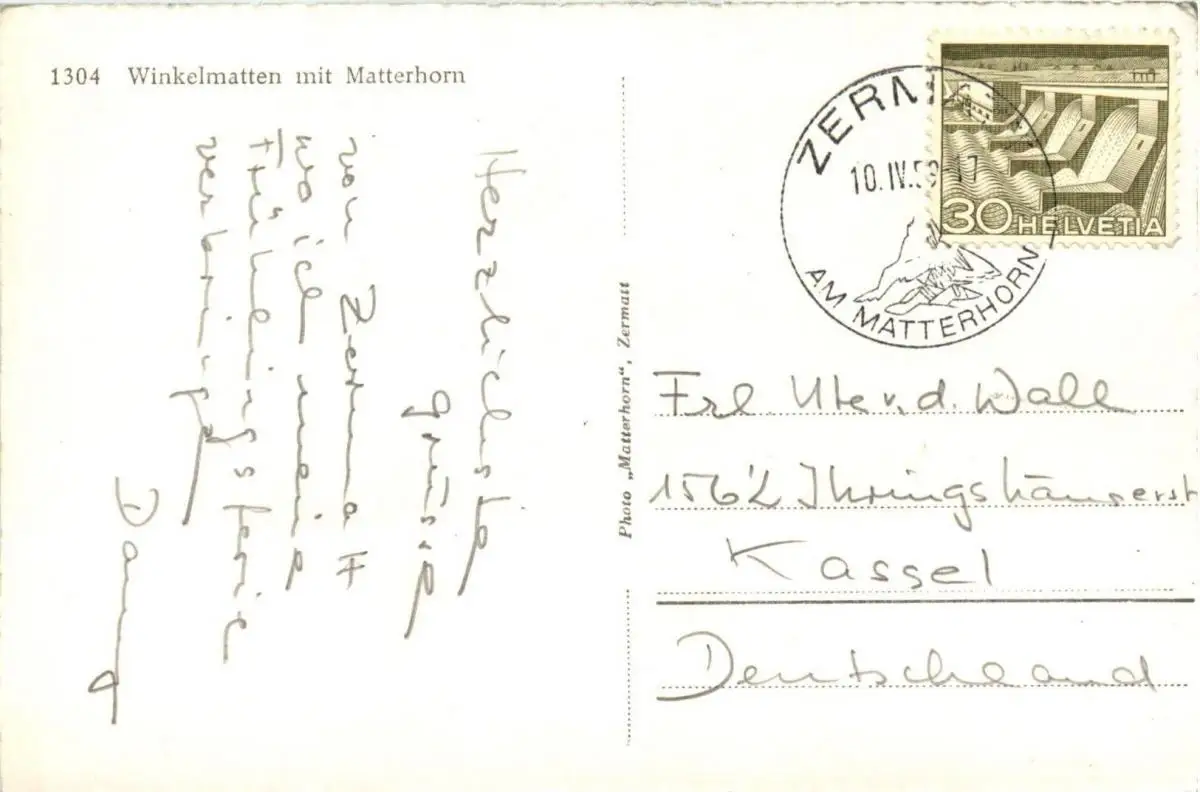 1304 Winkelmatten mit Matterhorn
Herzlichste
Grüsse
von Zermatt
wo ich meine
Frühlingsferie
verbringe
Photo „Matterhorn“, Zermatt
ZERMATT
10.IV.5 -17
AM MATTERHORN
30 HELVETIA
Frl Ute v. d. Wall
Ihringshäuserst
Kassel
Deutschland